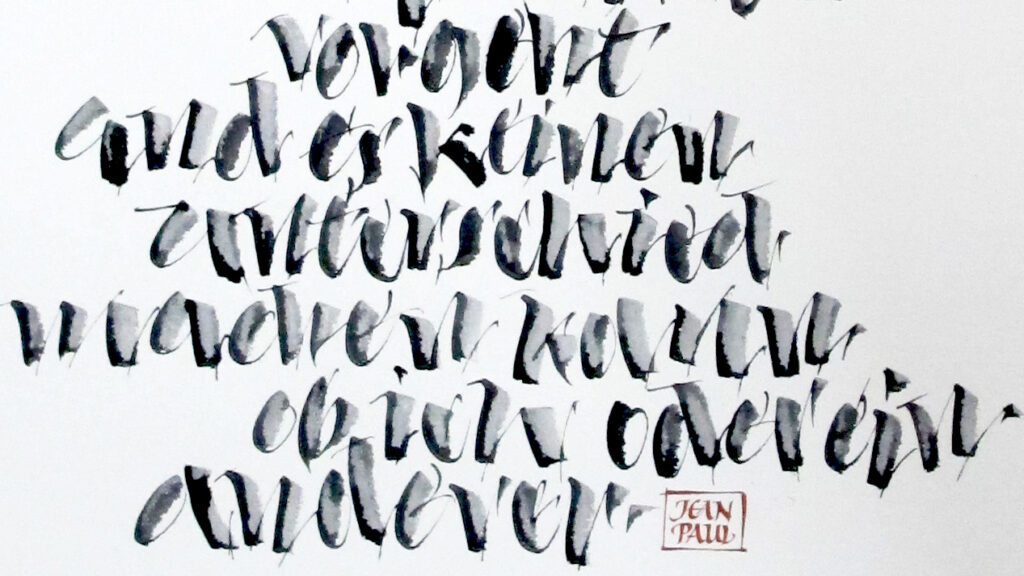 vorgeht
und er keinen
unterschied
machen kann
ob ich oder ein
anderer
JEAN
PAUL